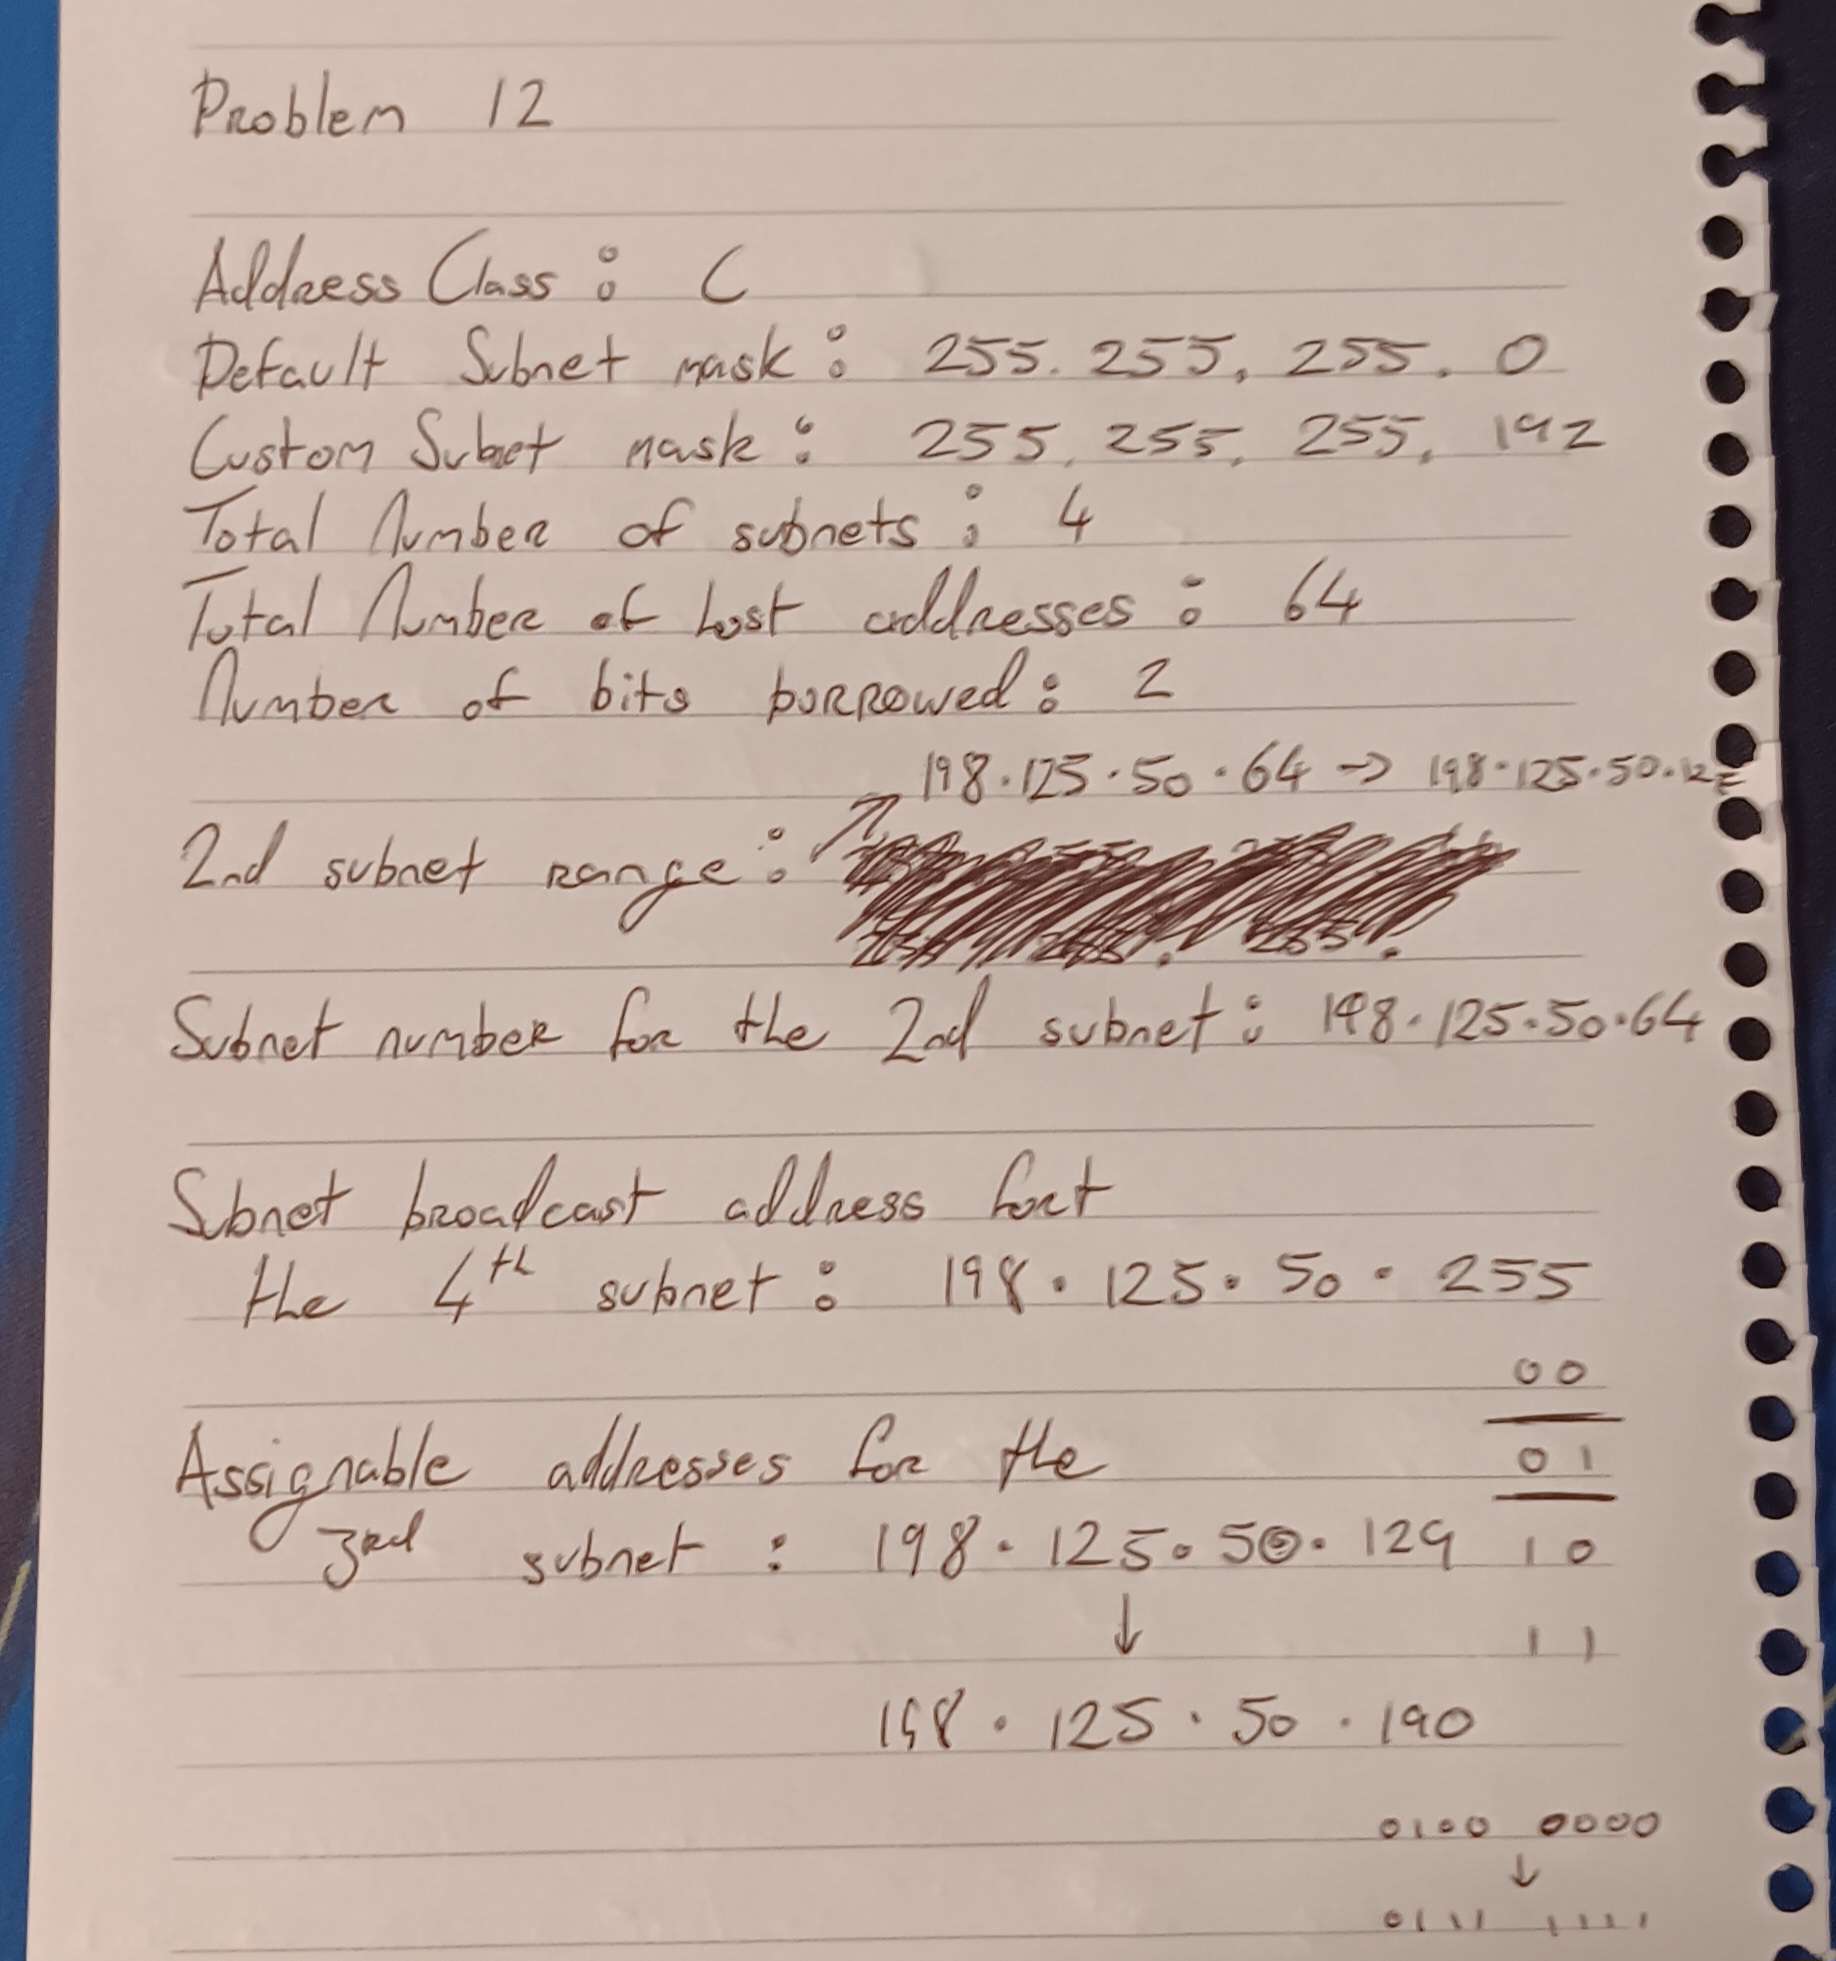 Problem 12
Address Class : C
Default Subnet mask : 255. 255. 255. 0
Custom Subet mask : 255. 255. 255. 192
Total Number of subnets : 4
Total Number of host addresses : 64
Number of bits borrowed : 2
198.125.50.64 → 198.125.50.12
2nd subnet range :
255.
Subnet number for the 2nd subnet : 198.125.50.64
Subnet broadcast address fort
the 4th subnet : 198.125.50.255
00
Assignable addresses for the
01
3rd subnet : 198.125.50.129
10
↓
11
198.125.50.190
0100 0000
↓
0111 1111